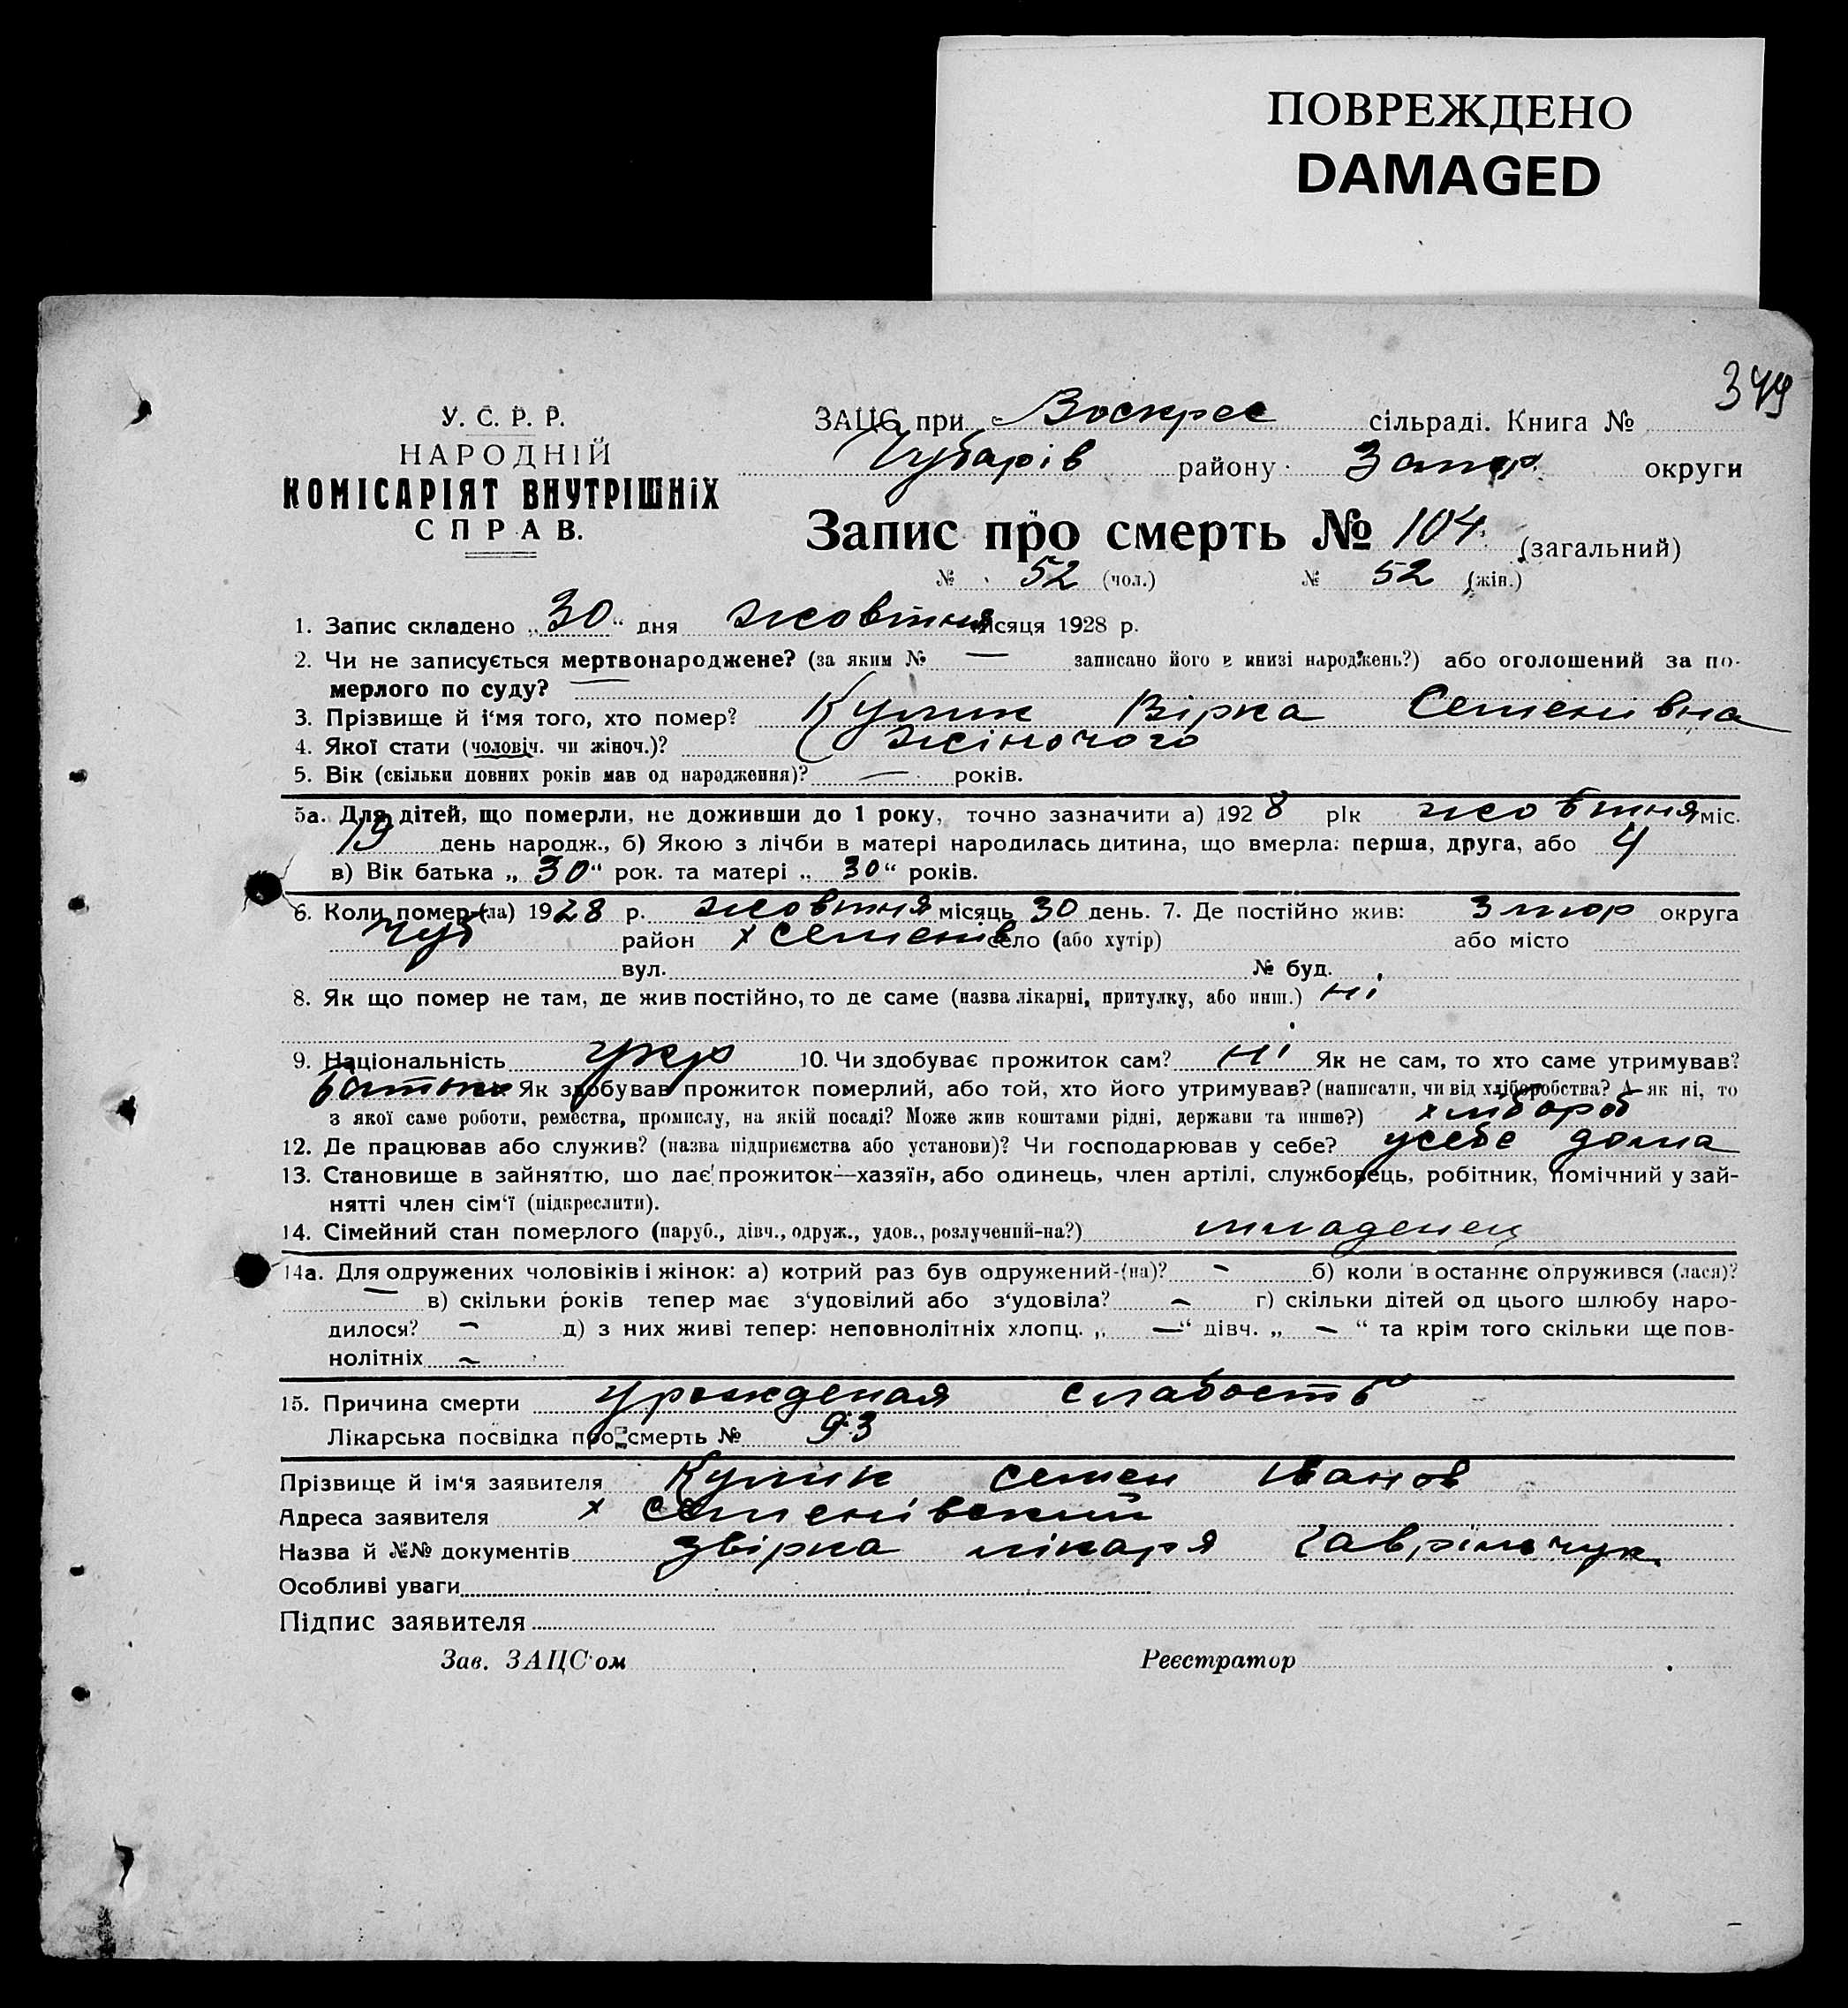 ПОВРЕЖДЕНО
DAMAGED
349
У. С. Р. Р.
НАРОДНІЙ
КОМІСАРІЯТ ВНУТРІШНІХ
СПРАВ.
ЗАЦС при Воскрес сільраді. Книга №
Чубарів району Запор. округи
Запис про смерть № 104 (загальний)
№ 52 (чол.) № 52 (жін.)
1. Запис складено „30“ дня жовтня місяця 1928 р.
2. Чи не записується мертвонароджене? (за яким № — записано його в книзі народжень?) або оголошений за по-
мерлого по суду? —
3. Прізвище й і'мя того, хто помер? Кулик Вірка Семенівна
4. Якої стати (чоловіч. чи жіноч.)? жіночого
5. Вік (скільки повних років мав од народження)? — років.
5а. Для дітей, що померли, не доживши до 1 року, точно зазначити а) 1928 рік жовтня міс.
19 день народж., б) Якою з лічби в матері народилась дитина, що вмерла: перша, друга, або 4
в) Вік батька „30“ рок. та матері „30“ років.
6. Коли помер-(ла) 1928 р. жовтня місяць 30 день. 7. Де постійно жив: Запор округа
Чуб район х Семенів село (або хутір) або місто
вул. № буд.
8. Як що помер не там, де жив постійно, то де саме (назва лікарні, притулку, або инш.) ні
9. Національність укр 10. Чи здобуває прожиток сам? ні Як не сам, то хто саме утримував?
батько Як здобував прожиток померлий, або той, хто його утримував? (написати, чи від хліборобства? А як ні, то
з якої саме роботи, ремества, промислу, на якій посаді? Може жив коштами рідні, держави та инше?) хлібороб
12. Де працював або служив? (назва підприємства або установи)? Чи господарював у себе? усебе дома
13. Становище в зайняттю, що дає прожиток—хазяїн, або одинець, член артілі, службовець, робітник, помічний у зай-
нятті член сім'ї (підкреслити).
14. Сімейний стан померлого (паруб., дівч., одруж., удов., розлучений-на?) младенец
14а. Для одружених чоловіків і жінок: а) котрий раз був одружений-(на)? — б) коли в останнє одружився (лася)?
— в) скільки років тепер має з'удовілий або з'удовіла? — г) скільки дітей од цього шлюбу наро-
дилося? — д) з них живі тепер: неповнолітніх хлопц. „—“ дівч. „—“ та крім того скільки ще пов-
нолітніх —
15. Причина смерти урожденая слабость
Лікарська посвідка про смерть № 93
Прізвище й ім'я заявителя Кулик Семен Іванов
Адреса заявителя х Семенівский
Назва й №№ документів звірка лікаря Гаврільчук
Особливі уваги
Підпис заявителя
Зав. ЗАЦС'ом Реєстратор